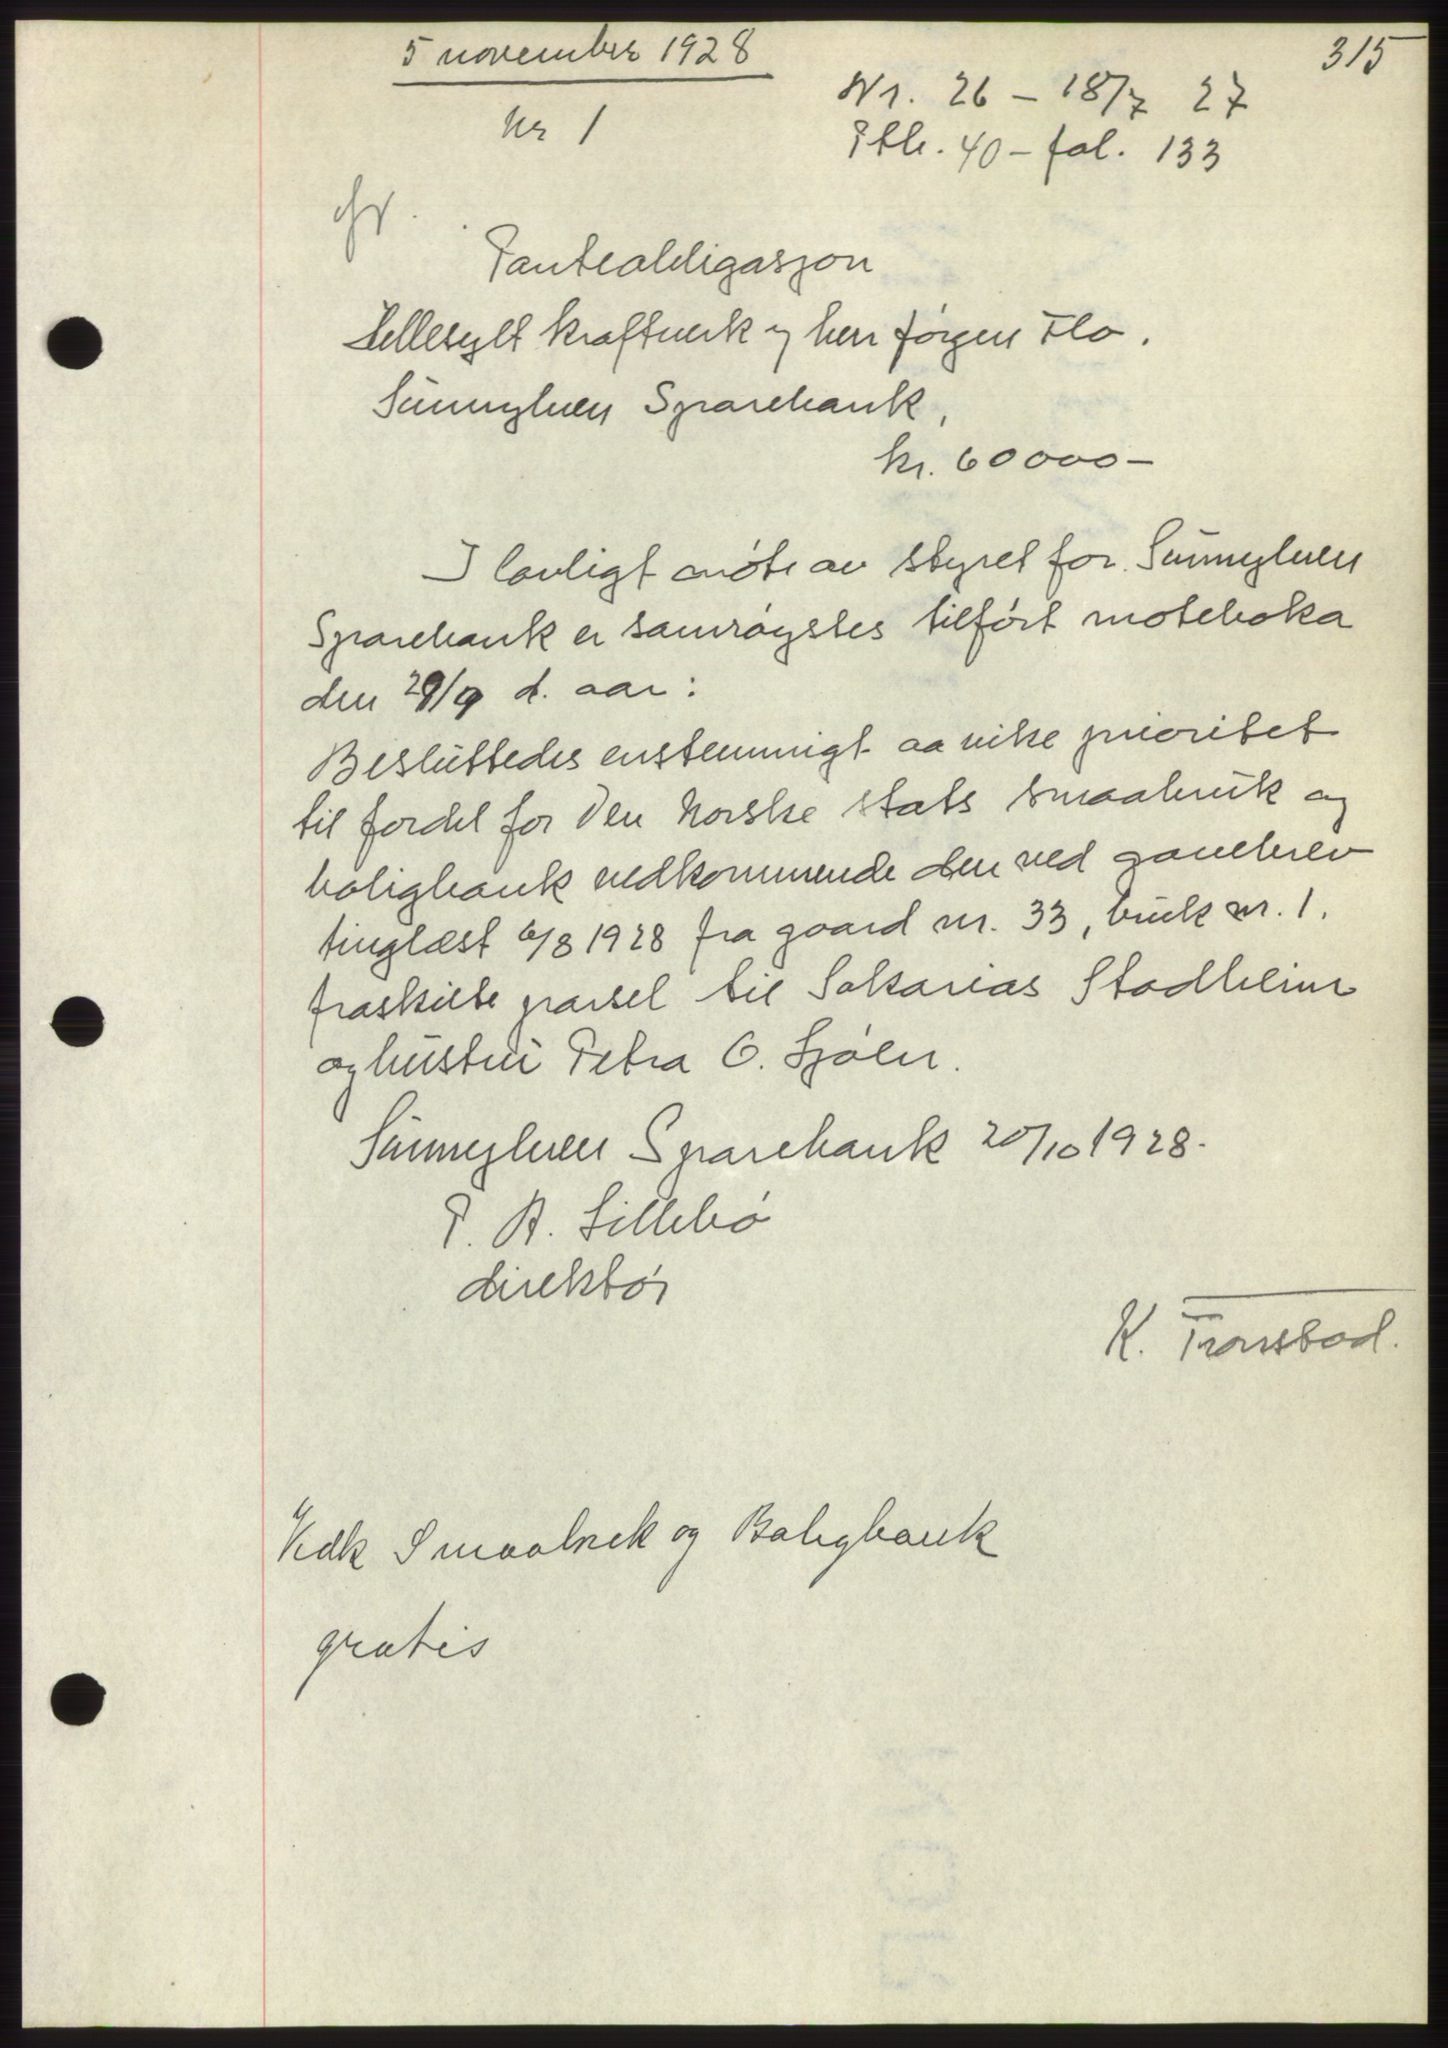 5 november 1928
315
Nr. 26 – 18/7 27
Nr 1
Ptb. 40 – fol. 133
Panteobligasjon
Hellesylt kraftverk og herr Jørgen Flo.
Sunnylven Sparebank,
kr. 60000–
I lovligt møte av styret for Sunnylven
Sparebank er samrøystes tilført moteboka
den 29/9 d. aar:
Besluttedes enstemmigt aa vike prioritet
til fordel for Den Norske stats smaabruk og
boligbank vedkommende den ved gavebrev
tinglæst 6/8 1928 fra gaard nr. 33, bruk nr. 1.
fraskilte parsel til Sakarias Stadheim
og hustru Petra O. Sjøen.
Sunnylven Sparebank 20/10 1928.
P. A. Lillebø
direktør
K. Tronstad.
Vedk Smaabruk og Boligbank
gratis